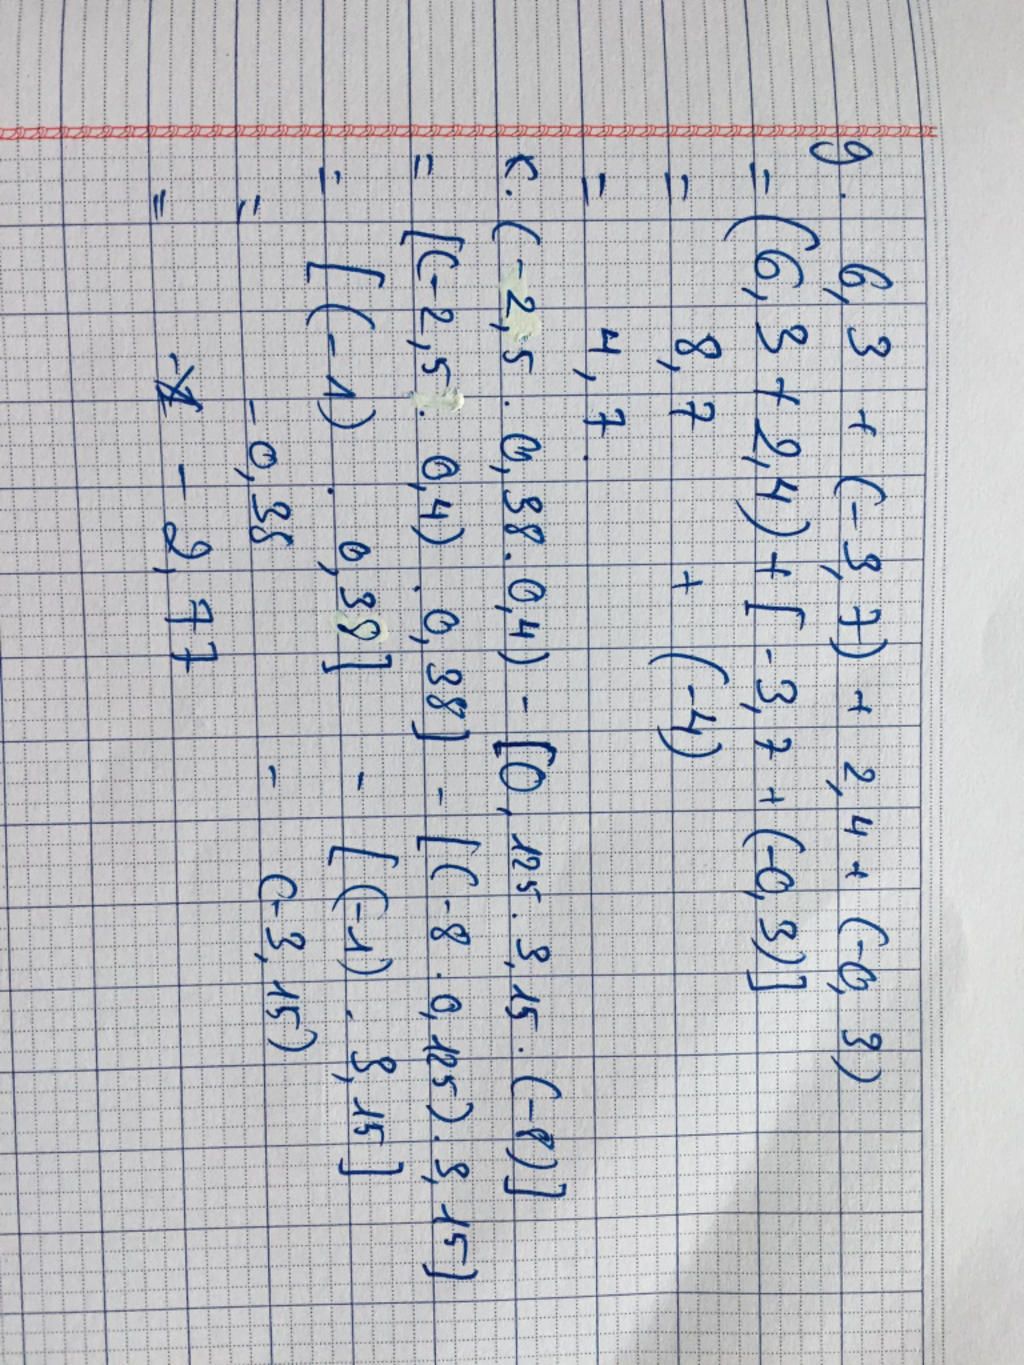 g. 6,3 + (-3,7) + 2,4 + (-0,3)
= (6,3 + 2,4) + [-3,7 + (-0,3)]
= 8,7 + (-4)
= 4,7.
k. (-2,5 . 0,38 . 0,4) - [0,125 . 3,15 . (-8)]
= [(-2,5 . 0,4) . 0,38] - [(-8 . 0,125) . 3,15]
= [(-1) . 0,38] - [(-1) . 3,15]
= -0,38 - (-3,15)
= - 2,77